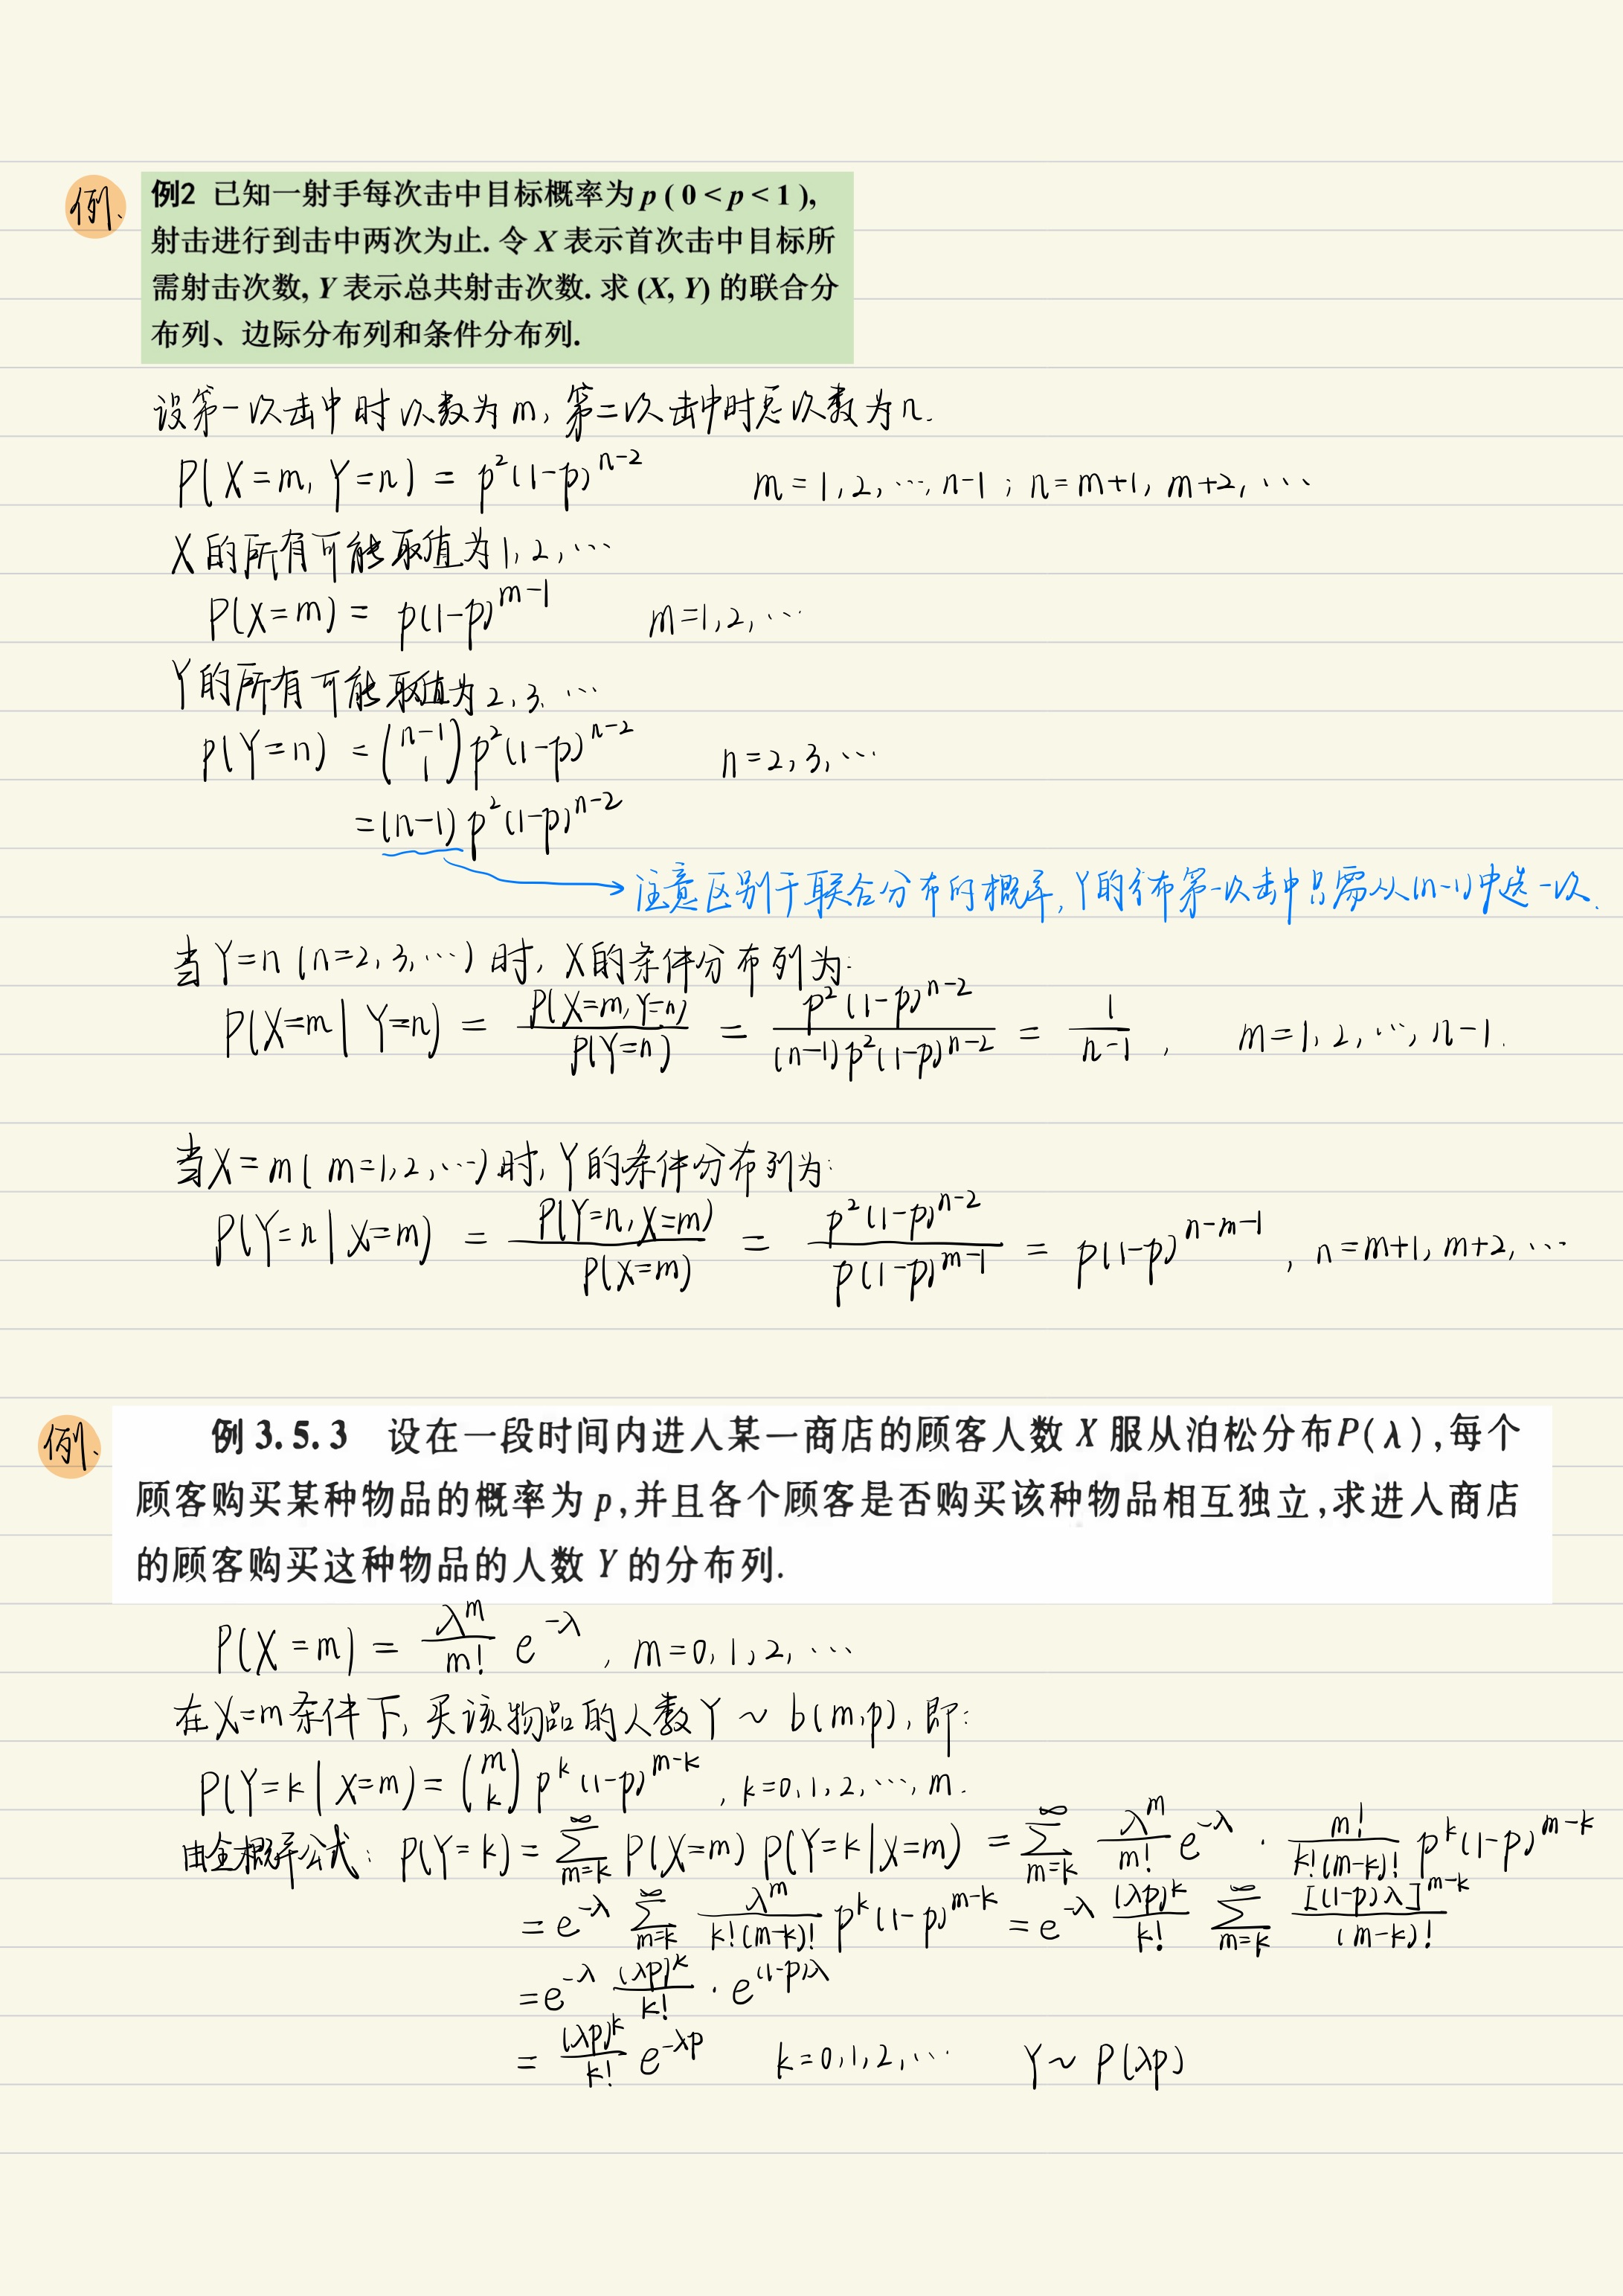 例、
例2 已知一射手每次击中目标概率为 p ( 0 < p < 1 ),
射击进行到击中两次为止. 令 X 表示首次击中目标所
需射击次数, Y 表示总共射击次数. 求 (X, Y) 的联合分
布列、边际分布列和条件分布列.
设第一次击中时次数为m, 第二次击中时总次数为n.
P(X=m, Y=n) = p²(1-p)^{n-2} m=1,2,…,n-1 ; n=m+1, m+2, …
X的所有可能取值为1,2,…
P(X=m) = p(1-p)^{m-1} m=1,2,…
Y的所有可能取值为2,3,…
P(Y=n) = \binom{n-1}{1} p²(1-p)^{n-2} n=2,3,…
=(n-1) p²(1-p)^{n-2}
注意区别于联合分布的概率, Y的分布第一次击中只需从(n-1)中选一次.
当Y=n (n=2,3,…) 时, X的条件分布列为:
P(X=m | Y=n) = \frac{P(X=m,Y=n)}{P(Y=n)} = \frac{p²(1-p)^{n-2}}{(n-1)p²(1-p)^{n-2}} = \frac{1}{n-1} , m=1,2,…,n-1.
当X=m ( m=1,2,…) 时, Y的条件分布列为:
P(Y=n | X=m) = \frac{P(Y=n,X=m)}{P(X=m)} = \frac{p²(1-p)^{n-2}}{p(1-p)^{m-1}} = p(1-p)^{n-m-1} , n=m+1, m+2, …
例、
例 3.5.3 设在一段时间内进入某一商店的顾客人数 X 服从泊松分布P(λ),每个
顾客购买某种物品的概率为 p,并且各个顾客是否购买该种物品相互独立,求进入商店
的顾客购买这种物品的人数 Y 的分布列.
P(X=m) = \frac{λ^m}{m!} e^{-λ} , m=0,1,2,…
在X=m条件下, 买该物品的人数Y ~ b(m,p), 即:
P(Y=k | X=m) = \binom{m}{k} p^k (1-p)^{m-k} , k=0,1,2,…,m.
由全概率公式: P(Y=k) = \sum_{m=k}^{∞} P(X=m) P(Y=k|X=m) = \sum_{m=k}^{∞} \frac{λ^m}{m!} e^{-λ} · \frac{m!}{k!(m-k)!} p^k(1-p)^{m-k}
= e^{-λ} \sum_{m=k}^{∞} \frac{λ^m}{k!(m-k)!} p^k(1-p)^{m-k} = e^{-λ} \frac{(λp)^k}{k!} \sum_{m=k}^{∞} \frac{[(1-p)λ]^{m-k}}{(m-k)!}
= e^{-λ} \frac{(λp)^k}{k!} · e^{(1-p)λ}
= \frac{(λp)^k}{k!} e^{-λp} k=0,1,2,… Y ~ P(λp)